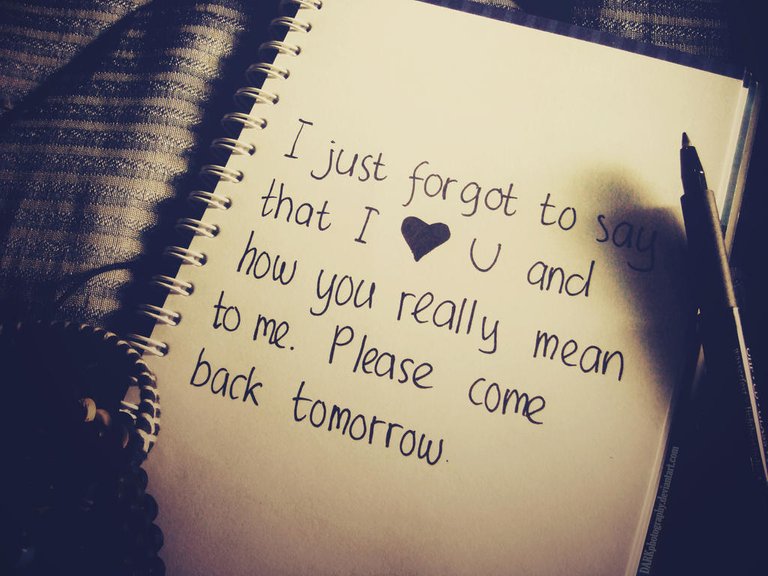 I just forgot to say
that I ♥ U and
how you really mean
to me. Please come
back tomorrow.
DARKphotography.deviantart.com